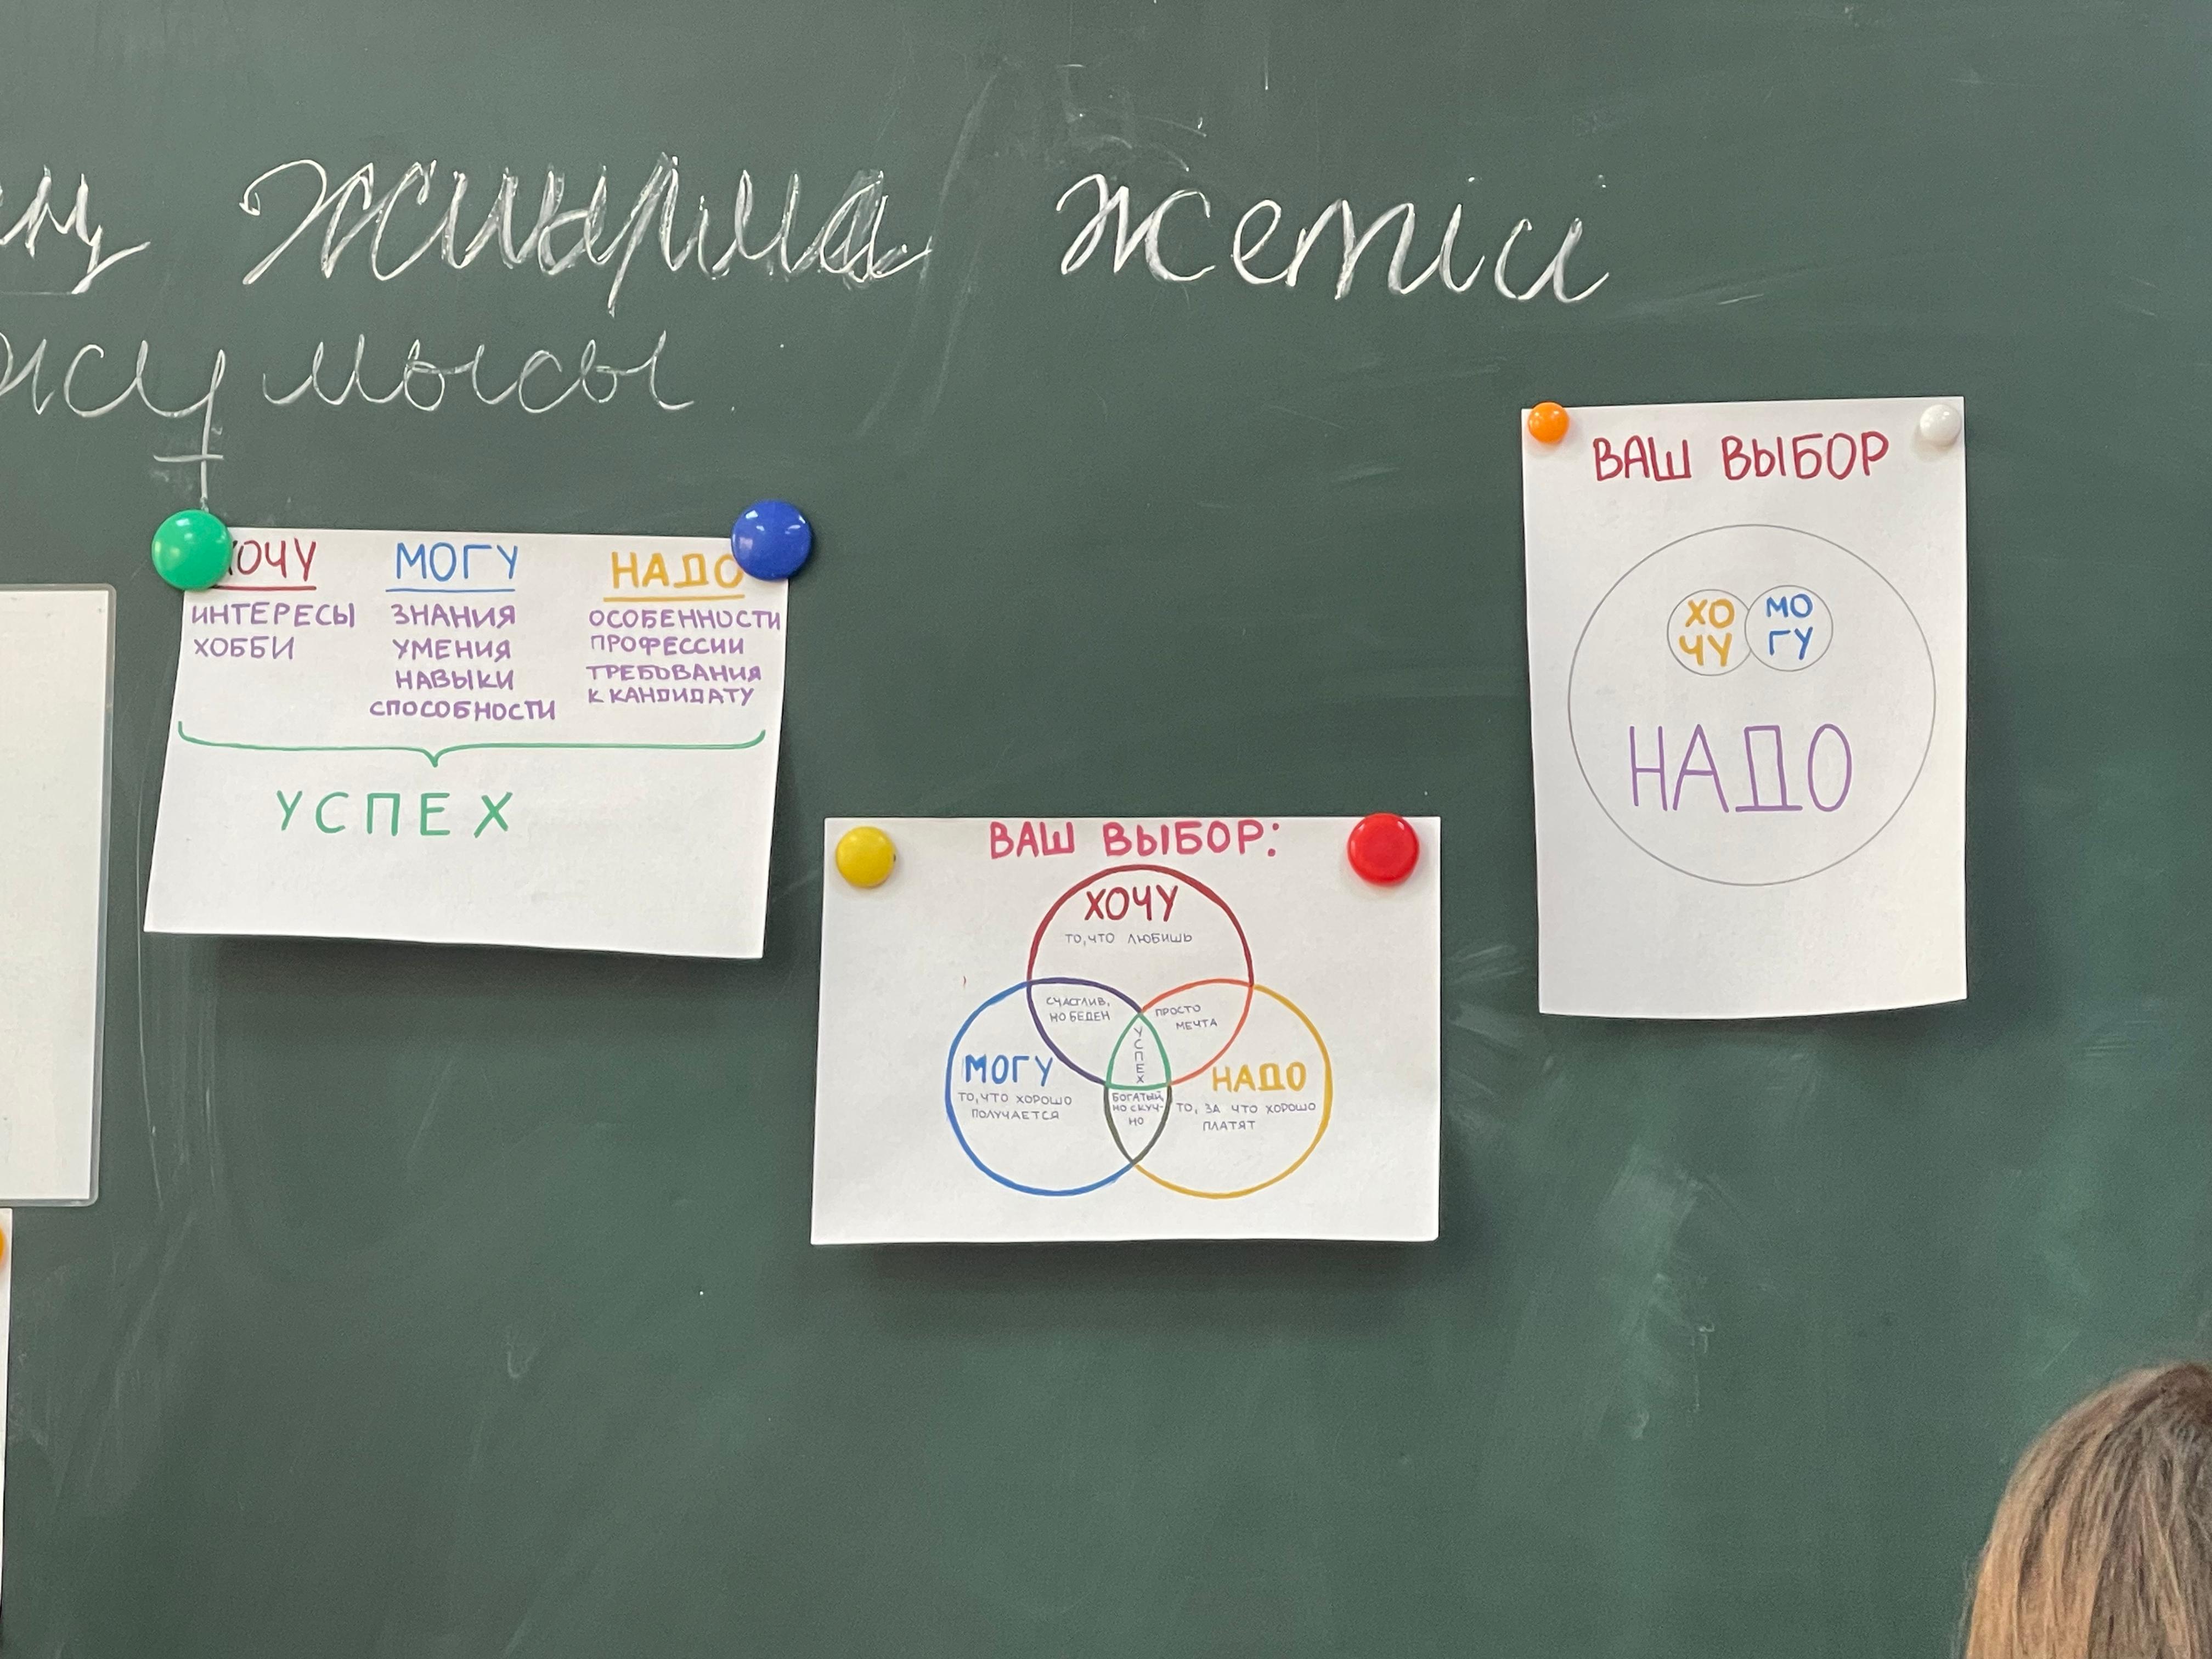 жиырма жетісі
жұмысы
ХОЧУ
ИНТЕРЕСЫ
ХОББИ
МОГУ
ЗНАНИЯ
УМЕНИЯ
НАВЫКИ
СПОСОБНОСТИ
НАДО
ОСОБЕННОСТИ
ПРОФЕССИИ
ТРЕБОВАНИЯ
К КАНДИДАТУ
УСПЕХ
ВАШ ВЫБОР:
ХОЧУ
ТО, ЧТО ЛЮБИШЬ
СЧАСТЛИВ,
НО БЕДЕН
ПРОСТО
МЕЧТА
УСПЕХ
МОГУ
ТО, ЧТО ХОРОШО
ПОЛУЧАЕТСЯ
БОГАТЫЙ,
НО СКУЧ-
НО
НАДО
ТО, ЗА ЧТО ХОРОШО
ПЛАТЯТ
ВАШ ВЫБОР
ХО
ЧУ
МО
ГУ
НАДО